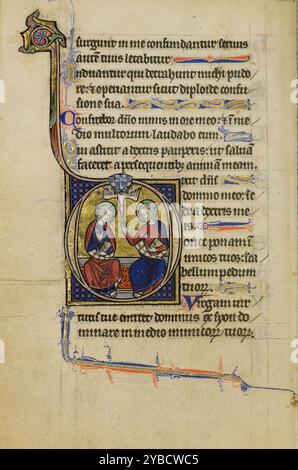 surgunt in me confundantur seruus
autem tuus letabitur
Induantur qui detrahunt michi pudo
re: & operiantur sicut diploide confu
sione sua.
Confitebor dño nimis in ore meo: & in me
dio multorum laudabo eum.
Qui astitit a dextris pauperis: ut saluā
faceret a persequentibꝫ animam meam.
Dixit dñs
domino meo: se
de a dextris me
is.
Donec ponam i
nimicos tuos: sca
bellum pedum
tuorꝝ.
Virgam uir
tutis tue emittet dominus ex syon do
minare in medio inimicorꝝ tuorꝝ.
alamy
Image ID: 2YBCWC5
www.alamy.com